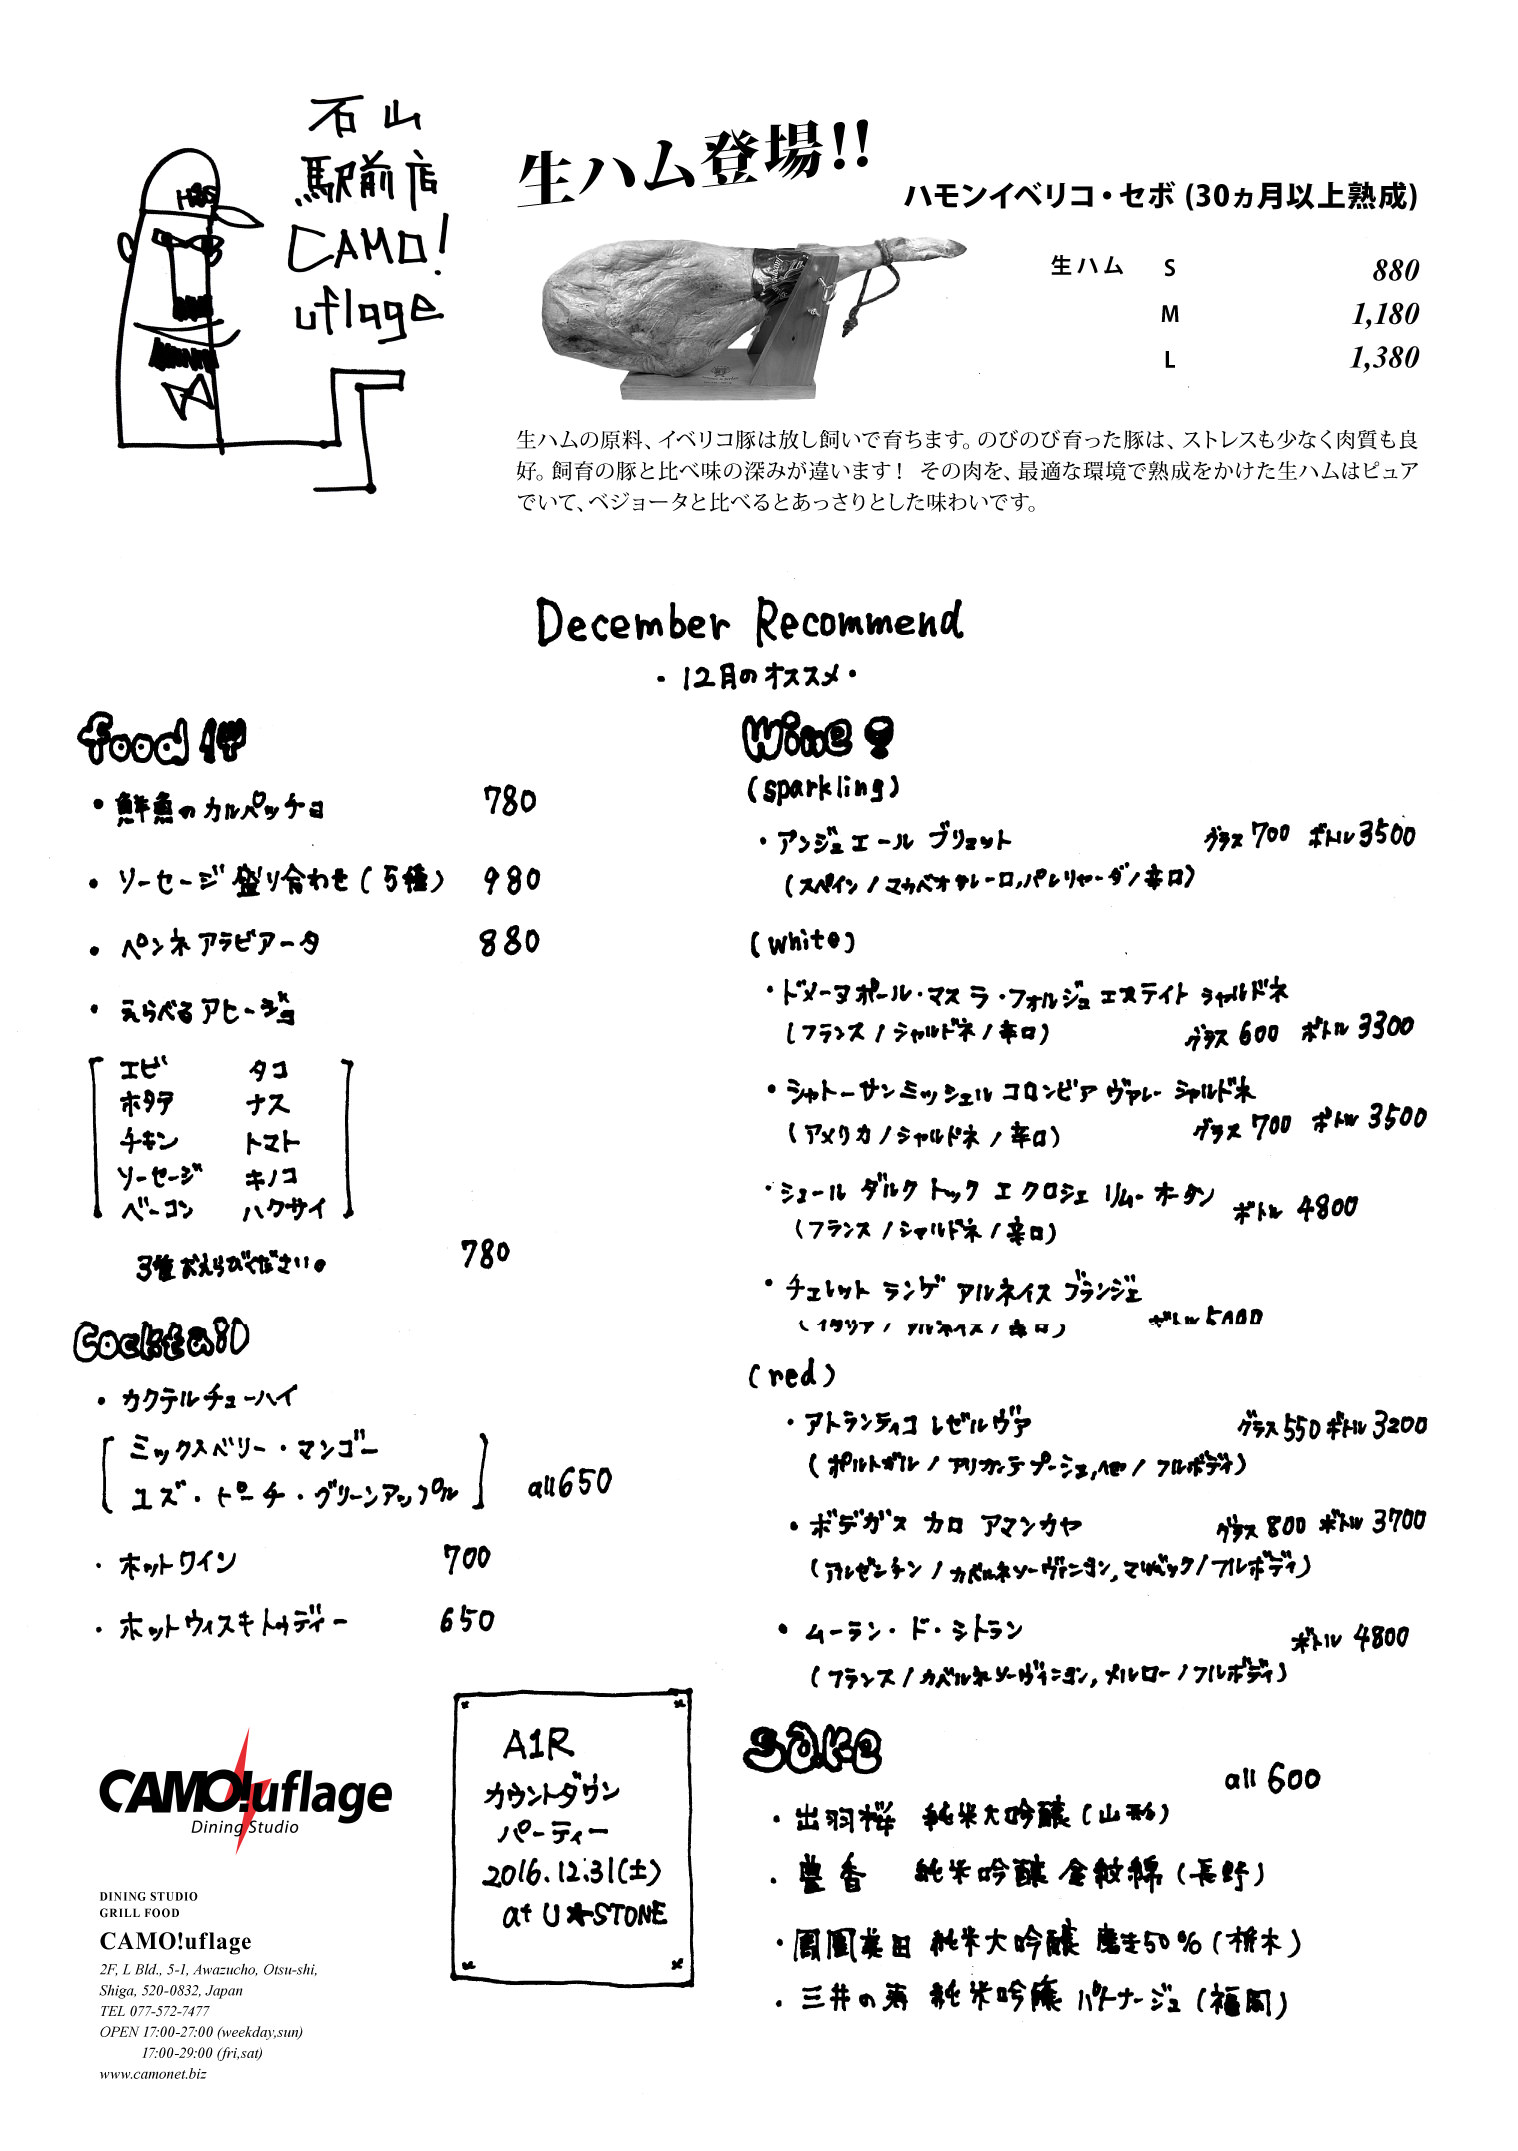 石山
駅前店
CAMO!
uflage
H&S
生ハム登場!!
ハモンイベリコ・セボ (30ヵ月以上熟成)
生ハム S 880
M 1,180
L 1,380
生ハムの原料、イベリコ豚は放し飼いで育ちます。のびのび育った豚は、ストレスも少なく肉質も良
好。飼育の豚と比べ味の深みが違います! その肉を、最適な環境で熟成をかけた生ハムはピュア
でいて、ベジョータと比べるとあっさりとした味わいです。
December Recommend
・12月のオススメ・
food
・鮮魚のカルパッチョ 780
・ソーセージ盛り合わせ(5種) 980
・ペンネアラビアータ 880
・えらべるアヒージョ
エビ タコ
ホタテ ナス
チキン トマト
ソーセージ キノコ
ベーコン ハクサイ
3種おえらびください。 780
Cocktail
・カクテルチューハイ
ミックスベリー・マンゴー
ユズ・ピーチ・グリーンアップル all 650
・ホットワイン 700
・ホットウィスキトゥディー 650
Wine
(sparkling)
・アンジュエール ブリュット グラス 700 ボトル 3500
(スペイン/マカベオ,チャレーロ,パレリャーダ/辛口)
(white)
・ドメーヌポール・マス ラ・フォルジュ エステイト シャルドネ
(フランス/シャルドネ/辛口) グラス 600 ボトル 3300
・シャトーサンミッシェル コロンビア ヴァレー シャルドネ
(アメリカ/シャルドネ/辛口) グラス 700 ボトル 3500
・シュール ダルク トック エ クロシェ リムー オータン ボトル 4800
(フランス/シャルドネ/辛口)
・チェレット ランゲ アルネイス ブランジェ
(イタリア/アルネイス/辛口) ボトル
(red)
・アトランティコ レゼルヴァ グラス 550 ボトル 3200
(ポルトガル/アリカンテブーシェ, /フルボディ)
・ボデガス カロ アマンカヤ グラス 800 ボトル 3700
(アルゼンチン/カベルネソーヴィニヨン,マルベック/フルボディ)
・ムーラン・ド・シトラン ボトル 4800
(フランス/カベルネソーヴィニヨン,メルロー/フルボディ)
Sake
all 600
・出羽桜 純米大吟醸(山形)
・豊香 純米吟醸 金紋錦(長野)
・鳳凰美田 純米大吟醸 磨き50%(栃木)
・三井の寿 純米吟醸 バトナージュ(福岡)
A1R
カウントダウン
パーティー
2016.12.31(土)
at U★STONE
CAMO!uflage
Dining Studio
DINING STUDIO
GRILL FOOD
CAMO!uflage
2F, L Bld., 5-1, Awazucho, Otsu-shi,
Shiga, 520-0832, Japan
TEL 077-572-7477
OPEN 17:00-27:00 (weekday,sun)
17:00-29:00 (fri,sat)
www.camonet.biz